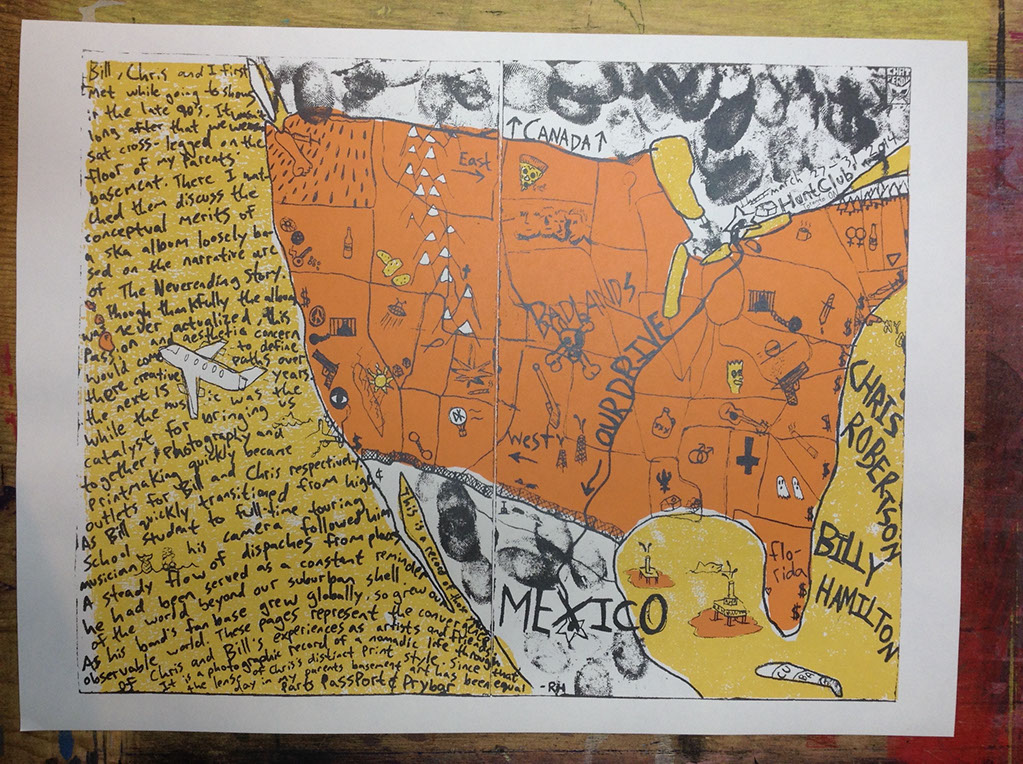 Bill, Chris and I first
met while going to shows
in the late 90's. It wasn't
long after that we were
sat cross-legged on the
floor of my parents'
basement. There I wat
ched them discuss the
conceptual merits of
a ska album loosely ba
sed on the narrative arc
of The Neverending Story.
Though thankfully the album
was never actualized this
passion and aesthetic concern
would come to define
there creative paths over
the next 15 years.
While the music was the
catalyst for bringing us
together photography and
printmaking quickly became
outlets for Bill and Chris respectively.
As Bill quickly transitioned from high
school student to full-time touring
musician his camera followed him
A steady flow of dispatches from places
he had been served as a constant reminder
of the world beyond our suburban shell.
As his band's fan base grew globally, so grew our
observable world. These pages represent the convergence
of Chris and Bill's experiences as artists and friends.
It is a photographic record of a nomadic life through
the lens of Chris's distinct print style. Since that
day in my parents basement art has been equal
parts Passport & Prybar
-RH
This is a record of that
↑CANADA↑
East →
BADLANDS
OUR DRIVE
West ←
MEXICO
flo-
rida
march 27-31 2014
Hunt Club
CHRIS
ROBERTSON
BILLY
HAMILTON